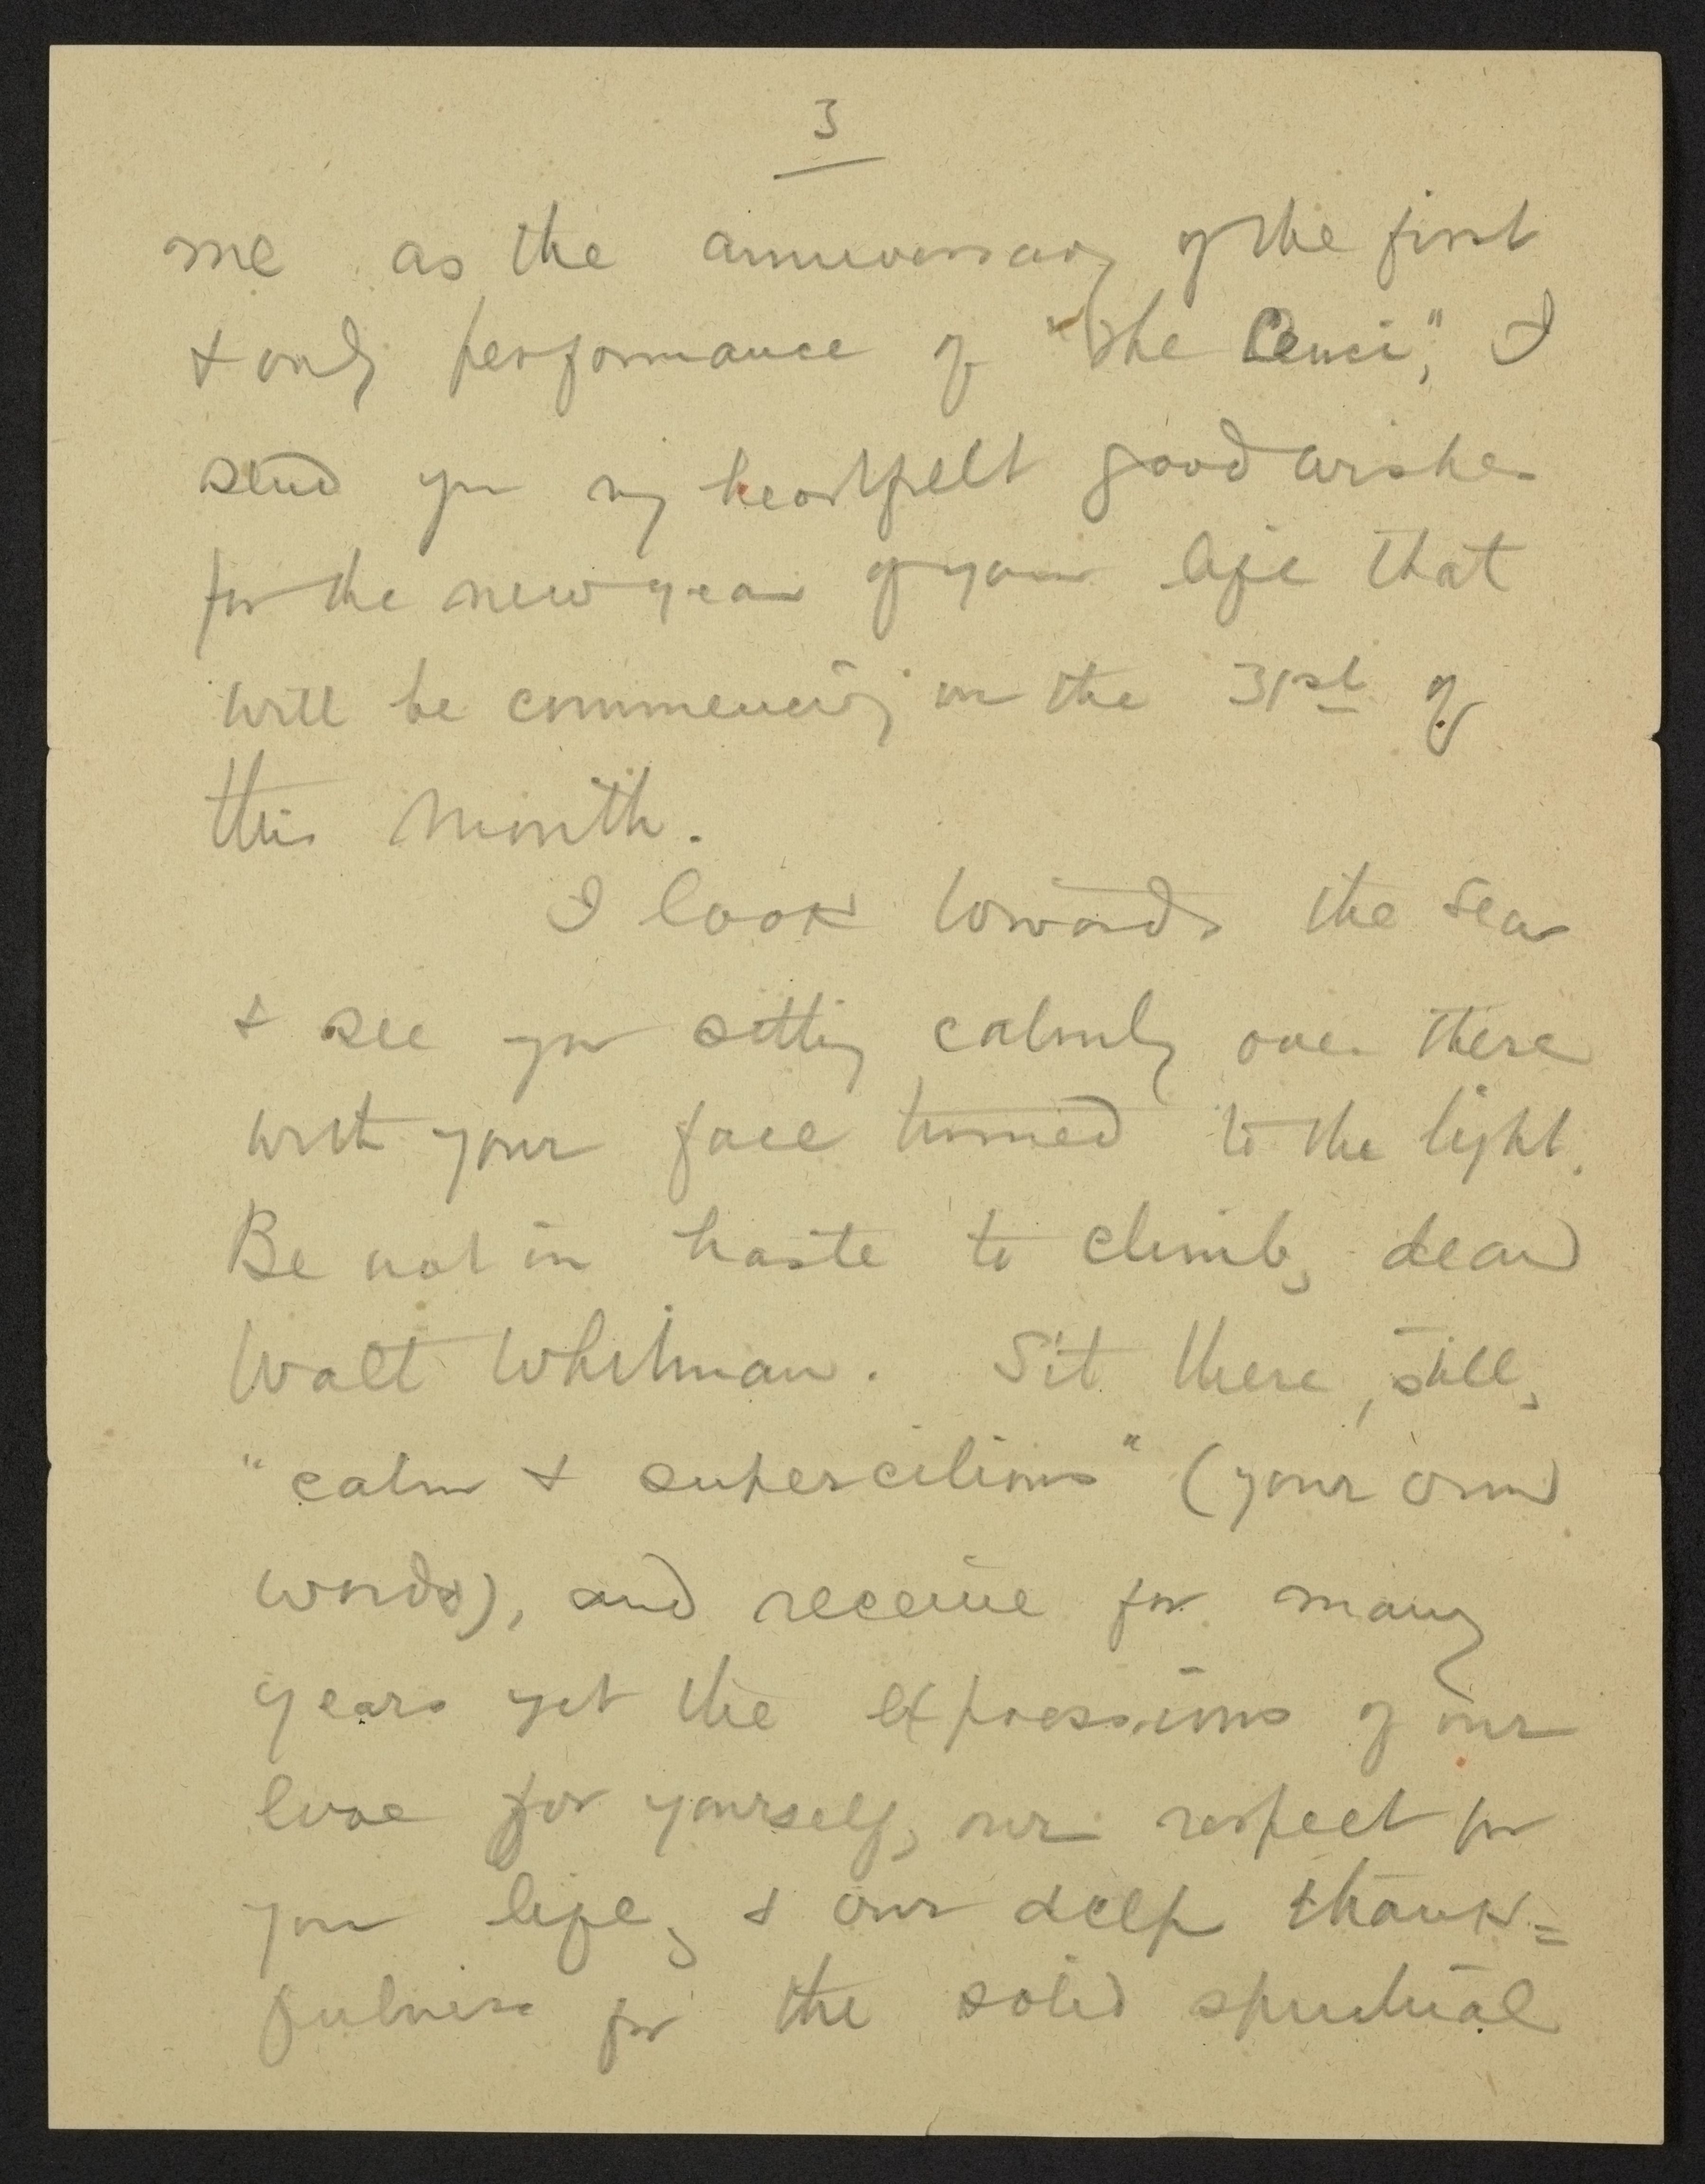 3
me as the anniversary of the first
& only performance of "The Cenci", I
send you my heartfelt good wishes
for the new year of your life that
will be commencing on the 31st of
this month.
I look towards the sea
& see you sitting calmly over there
with your face turned to the light.
Be not in haste to climb, dear
Walt Whitman. Sit there, still,
"calm & supercilious" (your own
words), and receive for many
years yet the expressions of our
love for yourself, our respect for
your life, & our deep thank=
fulness for the solid spiritual